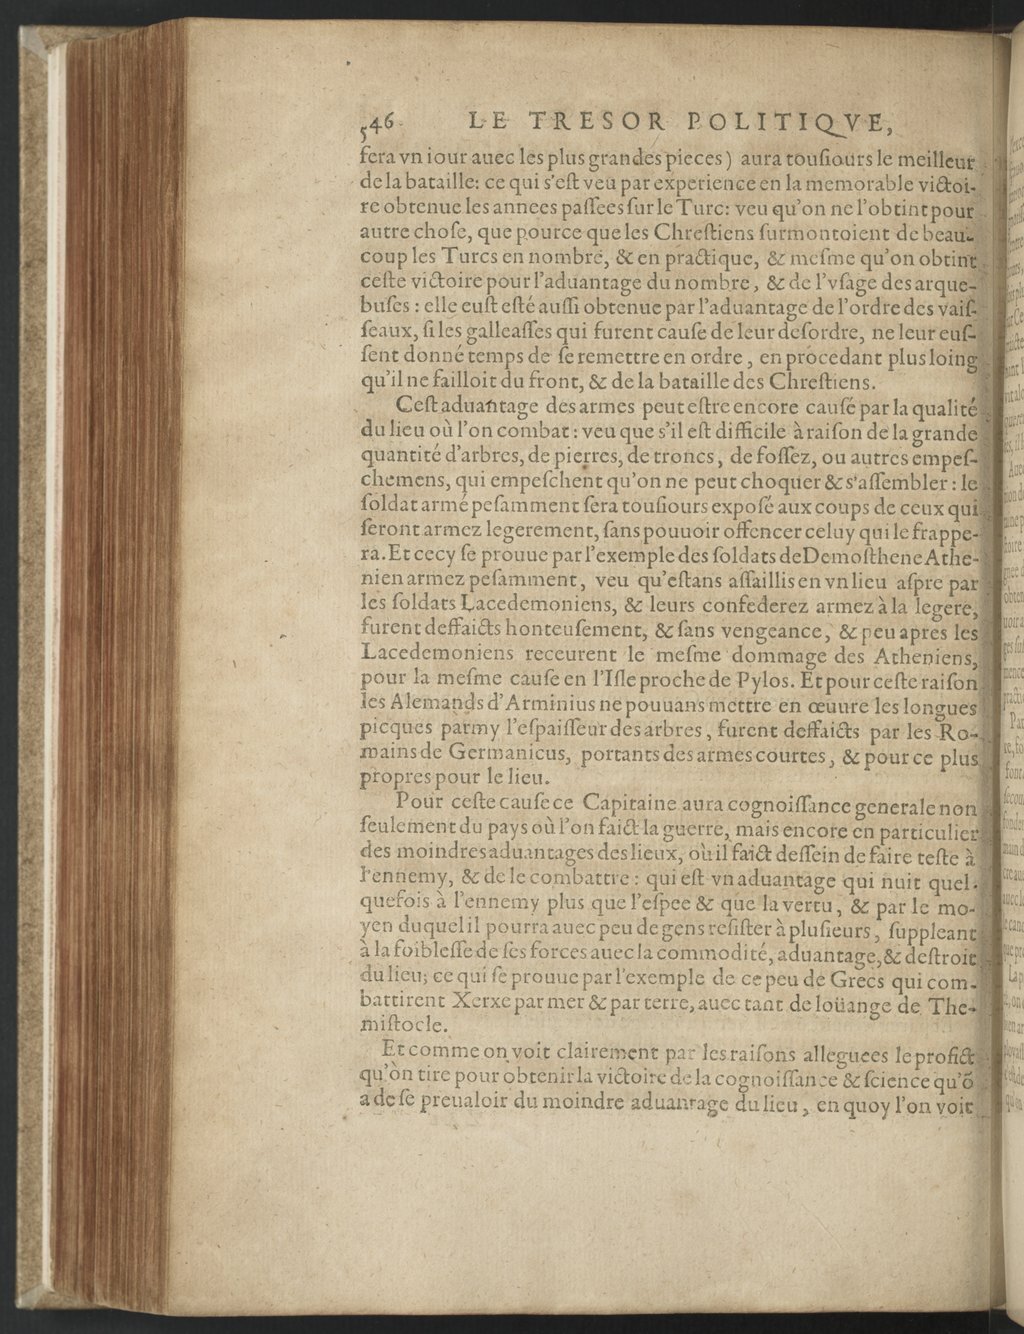 546 LE TRESOR POLITIQVE,
ſera vn iour auec les plus grandes pieces) aura touſiours le meilleur
de la bataille: ce qui s'eſt veu par experience en la memorable victoi-
re obtenue les annees paſſees ſur le Turc: veu qu'on ne l'obtint pour
autre choſe, que pource que les Chreſtiens ſurmontoient de beau-
coup les Turcs en nombre, & en practique, & meſme qu'on obtint
ceſte victoire pour l'aduantage du nombre, & de l'vſage des arque-
buſes : elle euſt eſté auſſi obtenue par l'aduantage de l'ordre des vaiſ-
ſeaux, ſi les galleaſſes qui furent cauſe de leur deſordre, ne leur euſ-
ſent donné temps de ſe remettre en ordre, en procedant plus loing
qu'il ne failloit du front, & de la bataille des Chreſtiens.
Ceſt aduantage des armes peut eſtre encore cauſé par la qualité
du lieu où l'on combat : veu que s'il eſt difficile à raiſon de la grande
quantité d'arbres, de pierres, de troncs, de foſſez, ou autres empeſ-
chemens, qui empeſchent qu'on ne peut choquer & s'aſſembler : le
ſoldat armé peſamment ſera touſiours expoſé aux coups de ceux qui
ſeront armez legerement, ſans pouuoir offencer celuy qui le frappe-
ra. Et cecy ſe prouue par l'exemple des ſoldats de Demoſthene Athe-
nien armez peſamment, veu qu'eſtans aſſaillis en vn lieu aſpre par
les ſoldats Lacedemoniens, & leurs confederez armez à la legere,
furent deffaicts honteuſement, & ſans vengeance, & peu apres les
Lacedemoniens receurent le meſme dommage des Atheniens,
pour la meſme cauſe en l'Iſle proche de Pylos. Et pour ceſte raiſon
les Alemands d'Arminius ne pouuans mettre en œuure les longues
picques parmy l'eſpaiſſeur des arbres, furent deffaicts par les Ro-
mains de Germanicus, portants des armes courtes, & pour ce plus
propres pour le lieu.
Pour ceſte cauſe ce Capitaine aura cognoiſſance generale non
ſeulement du pays où l'on faict la guerre, mais encore en particulier
des moindres aduantages des lieux, où il faict deſſein de faire teſte à
l'ennemy, & de le combattre : qui eſt vn aduantage qui nuit quel-
quefois à l'ennemy plus que l'eſpee & que la vertu, & par le mo-
yen duquel il pourra auec peu de gens reſiſter à pluſieurs, ſuppleant
à la foibleſſe de ſes forces auec la commodité, aduantage, & deſtroit
du lieu; ce qui ſe prouue par l'exemple de ce peu de Grecs qui com-
battirent Xerxe par mer & par terre, auec tant de loüange de The-
miſtocle.
Et comme on voit clairement par les raiſons alleguees le profict
qu'on tire pour obtenir la victoire de la cognoiſſance & ſcience qu'õ
a de ſe preualoir du moindre aduantage du lieu, en quoy l'on voit